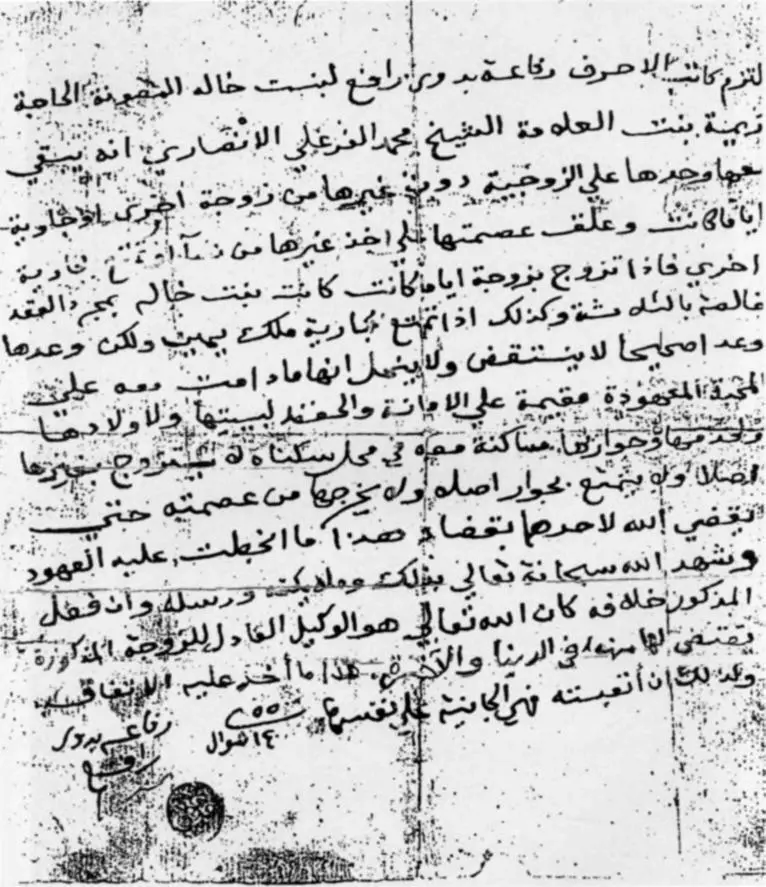 التزم كاتب الاحرف رفاعة بدوي رافع لبنت خاله المصونة الحاجة
كريمة بنت العلامة الشيخ محمد الفرغلي الانصاري انه يبقي
معها وحدها علي الزوجية دون غيرها من زوجة اخري او جارية
ايا ما كانت وعلق عصمتها علي اخذ غيرها من نسآ او تمتع بجارية
اخري فاذا تزوج بزوجة ايا ما كانت كانت بنت خاله بمجرد العقد
خالصة بالثلاثة وكذلك اذا تمتع بجارية ملك يمين ولكن وعدها
وعدا صحيحا لا ينتقض ولا ينحل انها ما دامت معه علي
المحبة المعهودة مقيمة علي الامانة والحفظ لبيتها ولاولادها
ولخدمها وجوارها مساكنة معه في محل سكناه لا يتزوج بغيرها
اصلا ولا يتمتع بجوار اصلا ولا يخرجها من عصمته حتي
يقضي الله لاحدهما بقضاه هذا ما انحطت عليه العهود
ويشهد الله سبحانه تعالي بذلك وملايكته ورسله وان فعل
المذكور خلافه كان الله تعالي هو الوكيل العادل للزوجة المذكورة
يقتضي لها منه في الدنيا والآخرة هذا ما أخذ عليه الاتفاق
وكذلك ان أتعبته فهي الجانية علي نفسها
١٤ شوال ٥٥
رفاعه بدوي
رافع